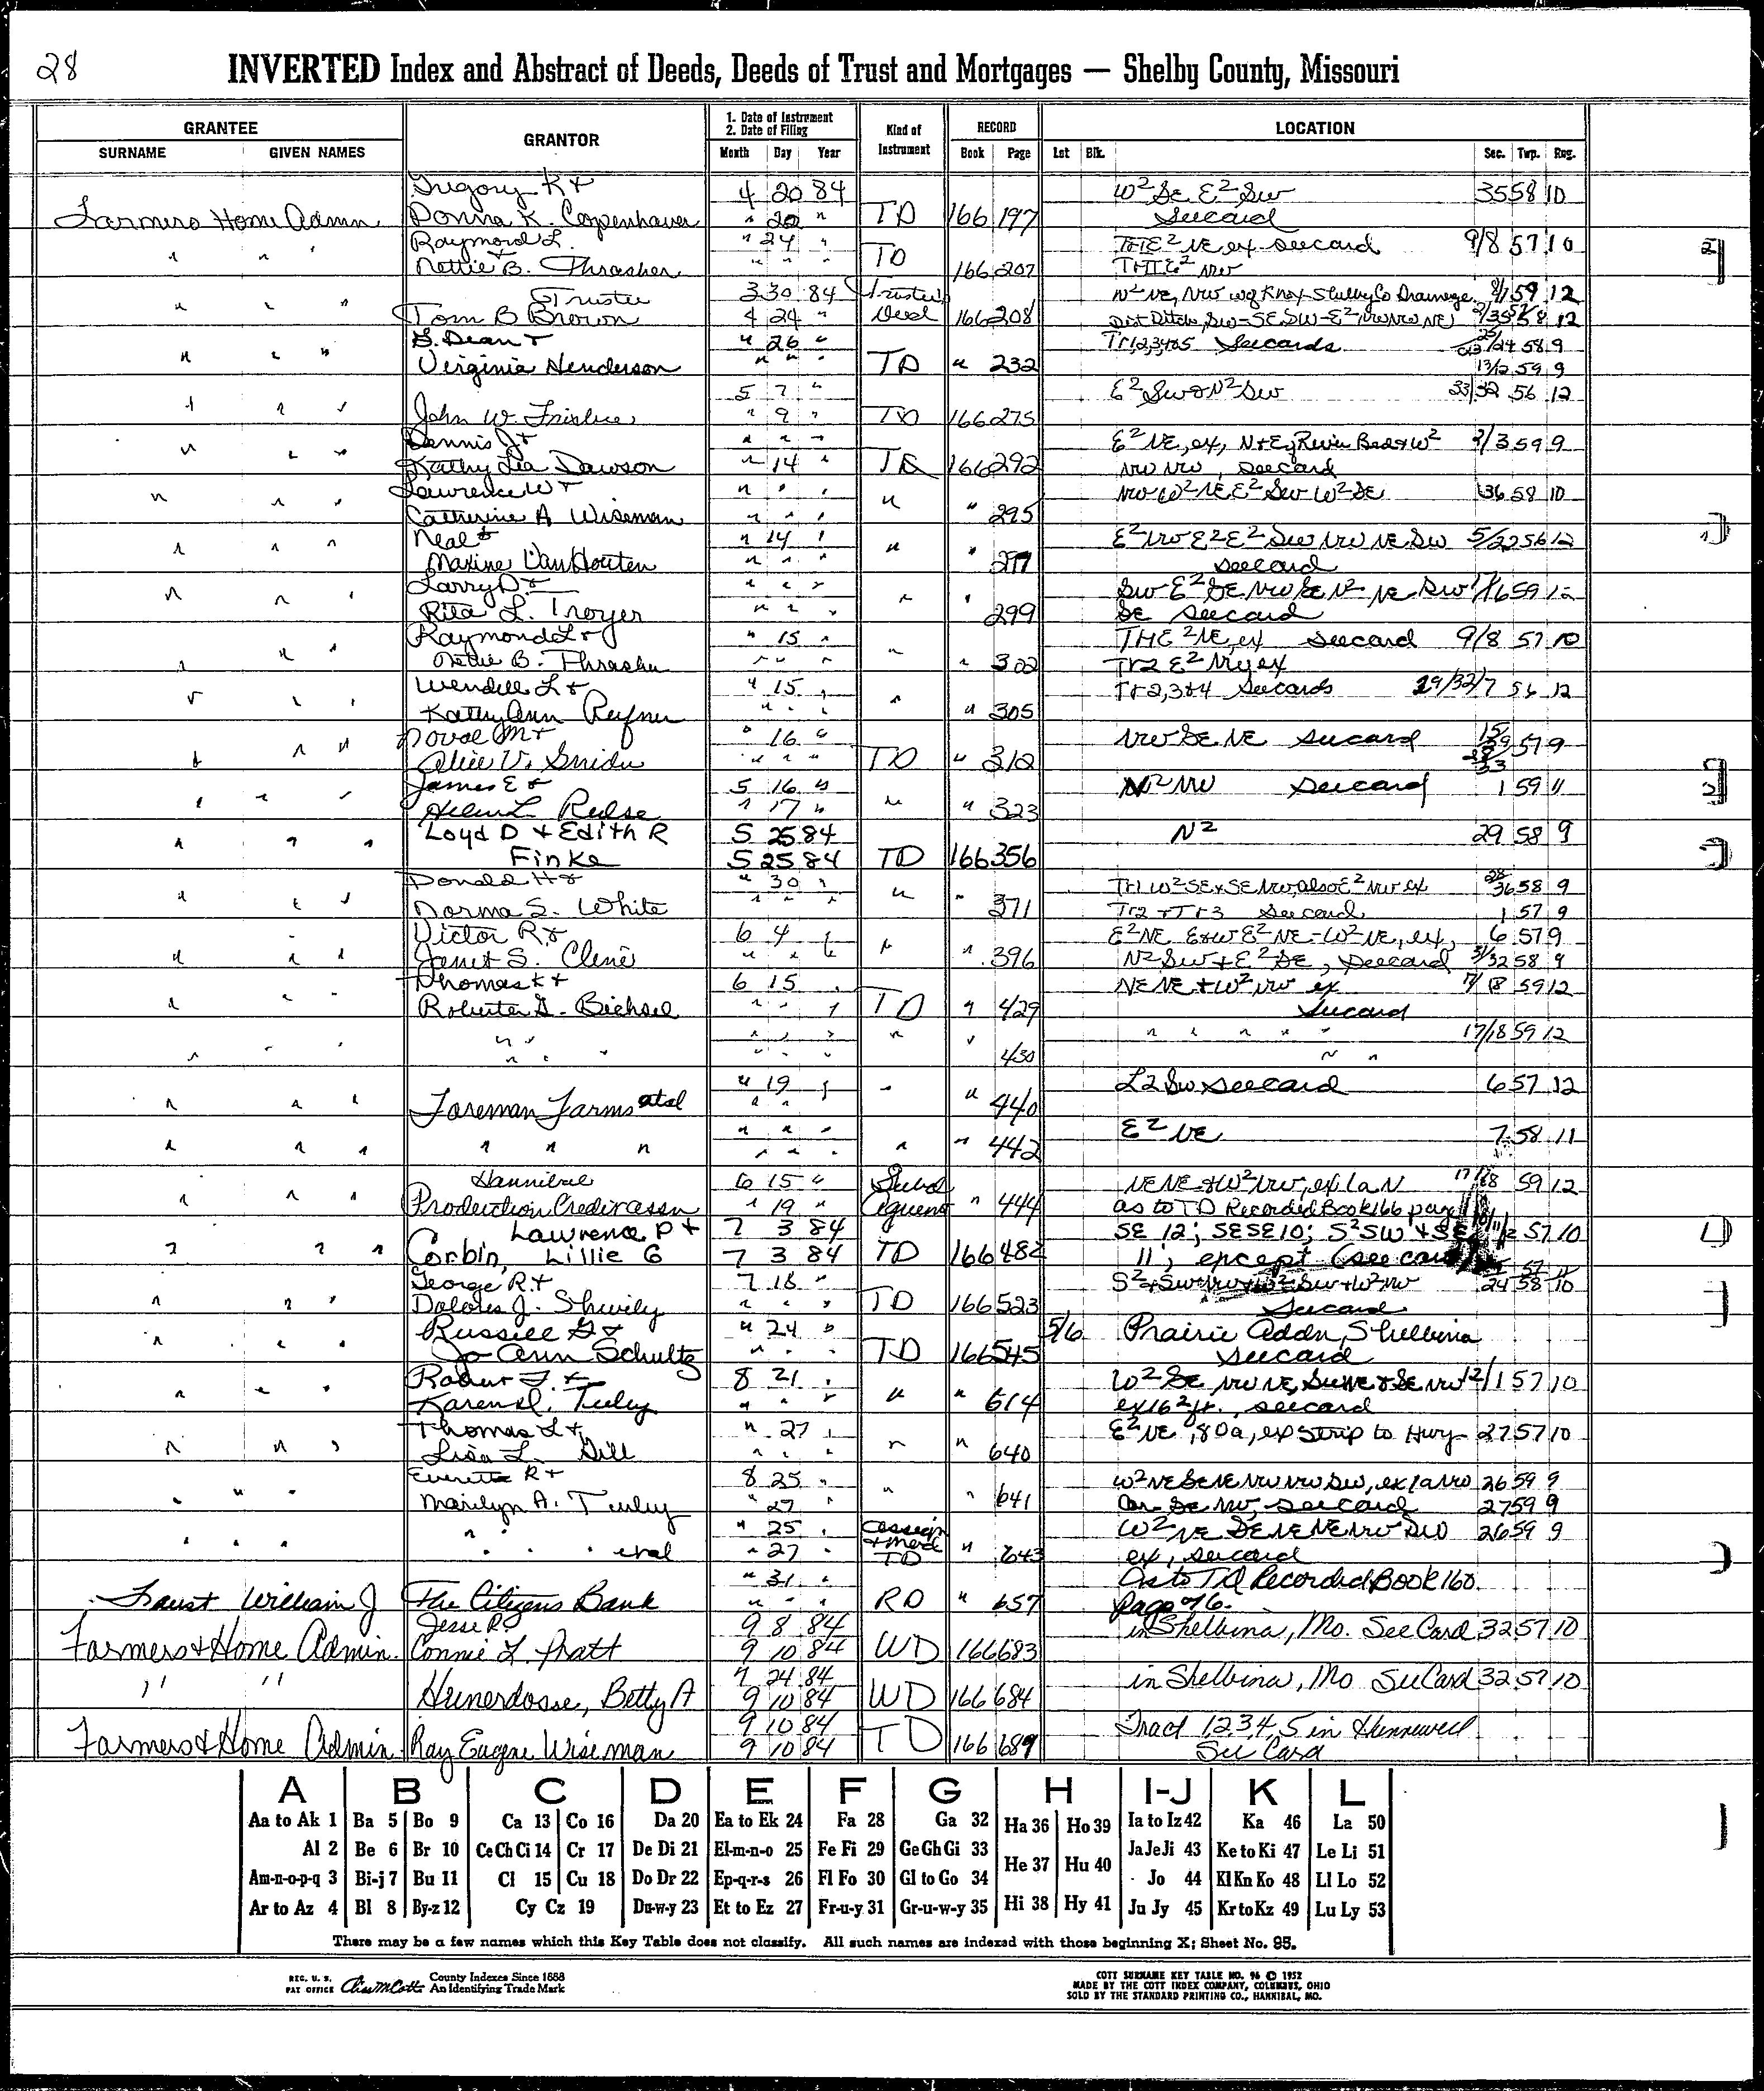 28
INVERTED Index and Abstract of Deeds, Deeds of Trust and Mortgages — Shelby County, Missouri
GRANTEE GRANTOR 1. Date of Instrument 2. Date of Filing Kind of Instrument RECORD LOCATION
SURNAME GIVEN NAMES Month Day Year Book Page Lot Blk. Sec. Twp. Rng.
Gregory K + 4 20 84 W² SE E² SW 35 58 10
Farmers Home Admn Donna K. Copenhaver " 20 " TD 166 197 seecard
Raymond L. + " 24 " E² NE, ex seecard 9/8 57 10
" " " Nettie B. Thrasher " " " TD 166 207 E² NW
Trustee 3 30 84 Trustee's W² NE, NW Knox-Shelby Co Drainage 59 12
" " " Tom B Brown 4 24 " Deed 166 208 Dist Ditch, SW-SE SW-E², NW NW NE 58 12
G. Dean + " 26 " Tr 1,2,3,4o5 seecards 24 58 9
" " " Virginia Henderson " " " TD " 232 13/12 59 9
5 7 " E² SW & N² SW 33/32 56 12
" " " John W. " 9 " TD 166 275
Dennis J + " " " E² NE, ex, N+E River Bed + W² 2/3 59 9
" " " Kathy Lea Dawson " 14 " TD 166 292 NW NW, seecard
Lawrence W + " " " NW W² NE E² SW W² SE 36 58 10
" " " Catherine A Wiseman " " " " " 295
Neal + " 14 " E² NW E² E² SW NW NE SW 5/22 56 12
" " " Maxine VanHouten " " " " " 297 seecard
Larry D + " " " SW E² SE NW SE N² NE SW 59 12
" " " Rita L. Troyer " " " " " 299 SE seecard
Raymond L + " 15 " E² NE, ex seecard 9/8 57 10
" " " Nettie B. Thrasher " " " " " 302 Tr 2 E² NW ex
Wendell L + " 15 " Tr 2, 3 & 4 seecards 29/32/7 56 12
" " " Kathy Ann " " " " " 305
M + " 16 " NW SE NE seecard 57 9
" " " Alice V. Snider " " " TD " 312
James E + 5 16 " N² NW seecard 1 59 11
" " " Helen L " 17 " " " 323
Loyd D + Edith R 5 25 84 N² 29 58 9
" " " Finke 5 25 84 TD 166 356
Donald H + " 30 " Tr 1 W² SE + SE NW, also E² NW ex 36 58 9
" " " Norma S. White " " " " " 371 Tr 2 + Tr 3 seecard 1 57 9
Victor R + 6 4 " E² NE E & W E² NE-W² NE, ex, 6 57 9
" " " Janet S. Cline " " " " " 396 N² SW + E² SE, seecard 31/32 58 9
Thomas K + 6 15 " NE NE + W² NW ex 17/18 59 12
" " " Roberta G. Bichsel " " " TD " 429 seecard
" " " " " " " " " 17/18 59 12
" " " " " " " " " " 430 " "
" 19 " L2 SW seecard 6 57 12
" " " Foreman Farms etal " " " " 440
" " " E² NE 7 58 11
" " " " " " " " " " 442
Hannibal 6 15 " NE NE + W² NW, ex 1a N 17/18 59 12
" " " Production Credit assn " 19 " " 444 as to TD Recorded Book 166 page
Lawrence P + 7 3 84 SE 12; SE SE 10; S² SW + SE 57 10
" " " Corbin, Lillie G 7 3 84 TD 166 482 11; except (see card)
George R + 7 18 " 24 58 10
" " " Dolores J. " " " TD 166 523 seecard
Russell G + " 24 " 5/6 Prairie Addn, Shelbina
" " " Jo Ann Schultz " " " TD 166 545 seecard
Robert J + 8 21 " W² SE NW NE, SW NE & SE NW 12/1 57 10
" " " Karen D. Turley " " " " " 614 ex 16² ft., seecard
Thomas L + " 27 " E² NE, 80a, ex strip to Hwy 27 57 10
" " " Lisa L. Gill " " " " " 640
Everett R + 8 25 " W² NE SE NE NW NW SW, ex 1a NW 26 59 9
" " " Marilyn A. Turley " 27 " " " 641 Cor SE NW, seecard 27 59 9
" " " 25 " Assign W² NE SE NE NE NW SW 26 59 9
" " " " " " etal " 27 " TD " 643 ex, seecard
" 31 " As to TD Recorded Book 160
Faust William J The Citizens Bank " " " RD " 657 page 96.
Jesse R + 9 8 84 in Shelbina, Mo. See Card 32 57 10
Farmers & Home Admin. Connie L Pratt 9 10 84 WD 166 683
7 24 84 in Shelbina, Mo See Card 32 57 10
" " Hunerdosse, Betty A 9 10 84 WD 166 684
9 10 84 Tract 1 2 3 4, 5 in Hunnewell
Farmers & Home Admin Ray Eugene Wiseman 9 10 84 TD 166 689 See Card
A B C D E F G H I-J K L
Aa to Ak 1 Ba 5 Bo 9 Ca 13 Co 16 Da 20 Ea to Ek 24 Fa 28 Ga 32 Ha 36 Ho 39 Ia to Iz 42 Ka 46 La 50
Al 2 Be 6 Br 10 Ce Ch Ci 14 Cr 17 De Di 21 El-m-n-o 25 Fe Fi 29 Ge Gh Gi 33 He 37 Hu 40 Ja Je Ji 43 Ke to Ki 47 Le Li 51
Am-n-o-p-q 3 Bi-j 7 Bu 11 Cl 15 Cu 18 Do Dr 22 Ep-q-r-s 26 Fl Fo 30 Gl to Go 34 Jo 44 Kl Kn Ko 48 Ll Lo 52
Ar to Az 4 Bl 8 By-z 12 Cy Cz 19 Du-w-y 23 Et to Ez 27 Fr-u-y 31 Gr-u-w-y 35 Hi 38 Hy 41 Ju Jy 45 Kr to Kz 49 Lu Ly 53
There may be a few names which this Key Table does not classify. All such names are indexed with those beginning X; Sheet No. 95.
REG. U. S. PAT OFFICE County Indexes Since 1888 An Identifying Trade Mark
COTT SURNAME KEY TABLE NO. 96 © 1952
MADE BY THE COTT INDEX COMPANY, COLUMBUS, OHIO
SOLD BY THE STANDARD PRINTING CO., HANNIBAL, MO.